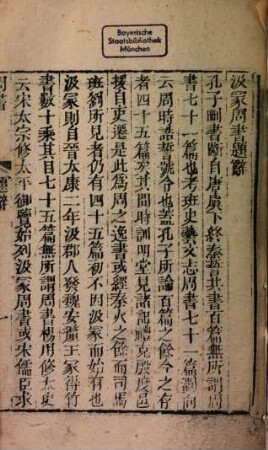 Bayerische
Staatsbibliothek
München
汲冢周書題辭
孔子刪書斷自唐虞下終秦誓其書百篇無所謂周
書七十一篇也考班史藝文志周書七十一篇劉向
云周時誥誓號令也蓋孔子所論百篇之餘今之存
者四十五篇矣其間時訓明堂見諸記聽克殷度邑
援自史遷是此為周之逸書或經秦火之餘而司馬
班劉所見者仍有四十五篇初不因汲冢而始有也
汲冢則自晉太康二年汲郡人發魏安釐王冢得竹
書數十乘其目七十五篇無所謂周書楊用修太史
云宋太宗修太平御覽始列汲冢周書或宋儒臣求